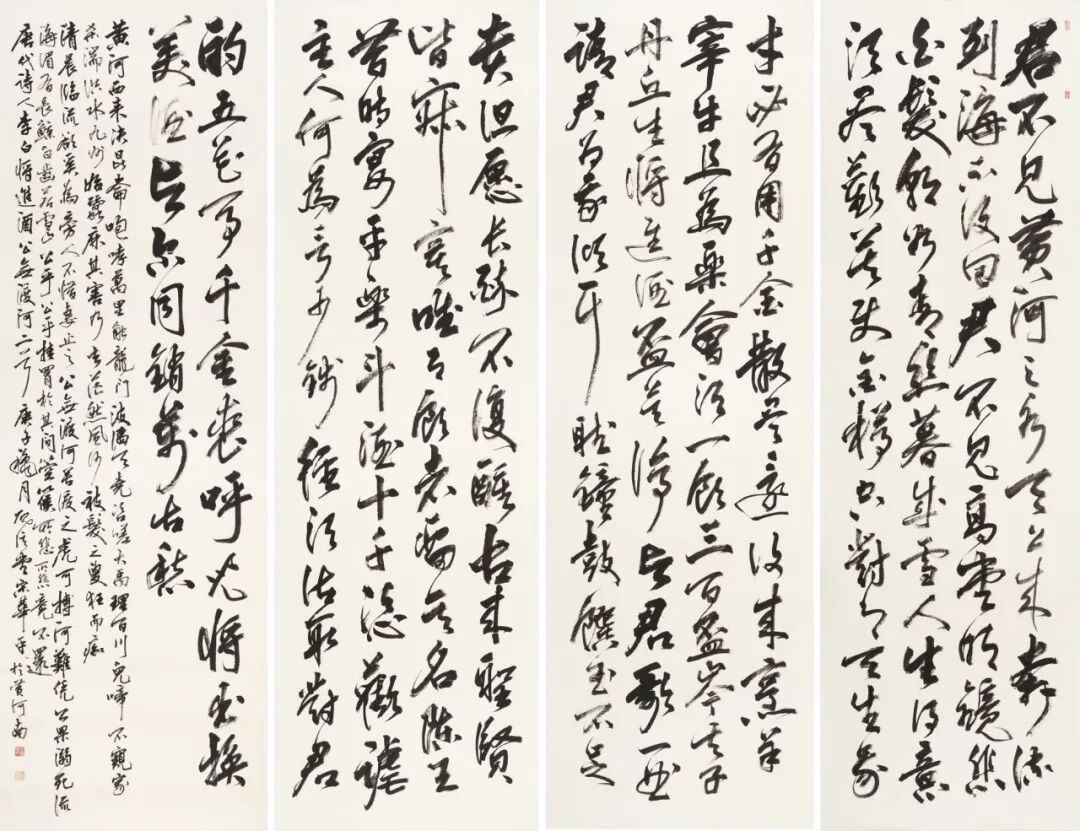 君不见黄河之水天上来奔流
到海不復回君不见高堂明鏡悲
白髮朝如青絲暮成雪人生得意
須盡歡莫使金樽空對月天生我
才必有用千金散盡還復来烹羊
宰牛且為樂會須一飲三百盃岑夫子
丹丘生將進酒盃莫停與君歌一曲
請君為我傾耳聽鐘鼓饌玉不足
貴但愿長醉不復醒古来聖賢
皆寂寞唯有飲者留其名陳王
昔時宴平樂斗酒十千恣歡謔
主人何為言少錢徑須沽取對君
酌五花馬千金裘呼兒將出換
美酒與爾同銷萬古愁
黄河西来決昆崙咆哮萬里觸龍門波滔天堯咨嗟大禹理百川兒啼不窺家
杀湍洪水九州始蠶麻其害乃去茫然風沙被髮之叟狂而痴
清晨臨流欲奚為旁人不惜妻止之公無渡河苦渡之虎可搏河難憑公果溺死流
海湄有長鯨白齒若雪山公乎公乎挂罥於其間箜篌所悲竟不還
唐代詩人李白將進酒公無渡河二首庚子月宋華平於黄河南